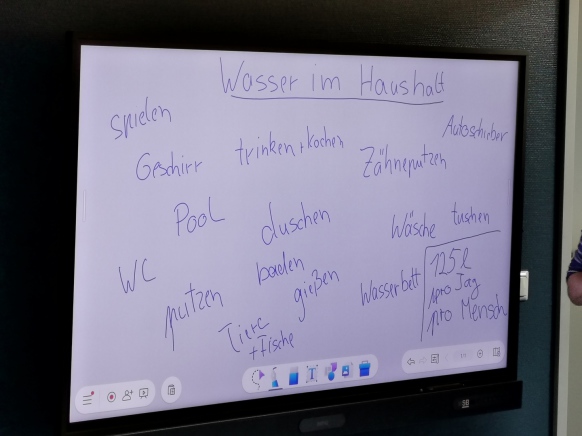 Wasser im Haushalt
spielen
Autoschieber
Geschirr
trinken + kochen
Zähneputzen
Pool
duschen
Wäsche
tushen
WC
baden
putzen
gießen
Wasserbett
125 l
pro Tag
pro Mensch
Tiere
+ Fische